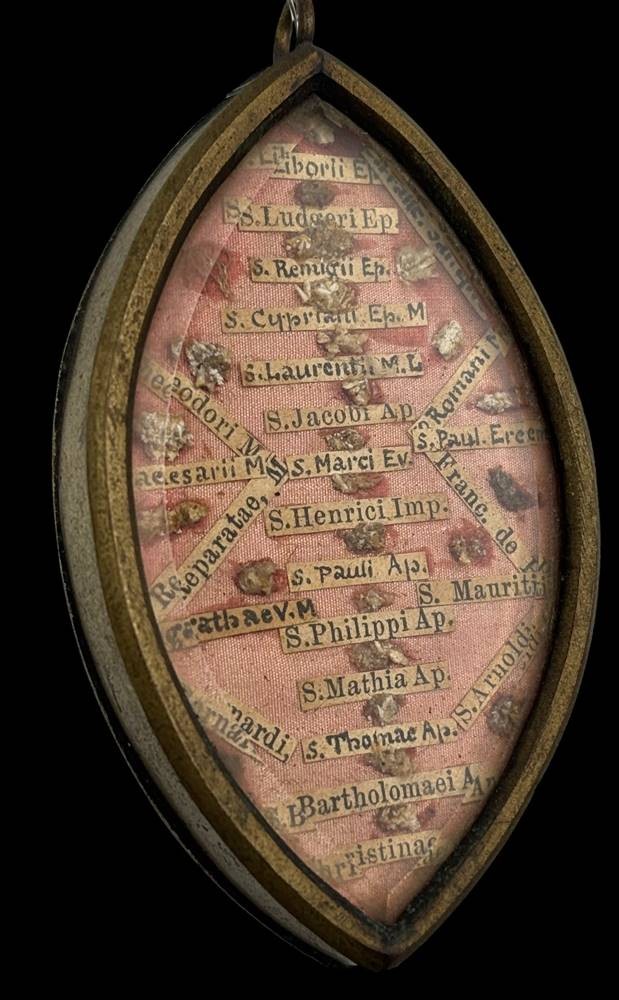 Liborii Ep
S. Ludgeri Ep.
S. Remigii Ep.
S. Cypriani Ep. M
S. Laurentii M. L
S. Jacobi Ap
Romani M
Theodori M
S. Paul. Erem
Caesarii M
S. Marci Ev.
Reparatae, M
Franc. de
S. Henrici Imp.
S. Pauli Ap.
S. Mauritii
Agathae V. M
S. Philippi Ap.
S. Mathia Ap.
S. Arnoldi
Bernardi,
S. Thomae Ap.
S. Bartholomaei Ap
Christinae